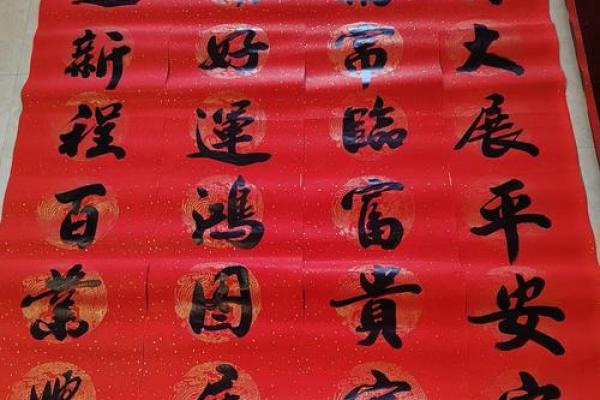 大展平安
常臨富貴
好運鴻图
新程百業